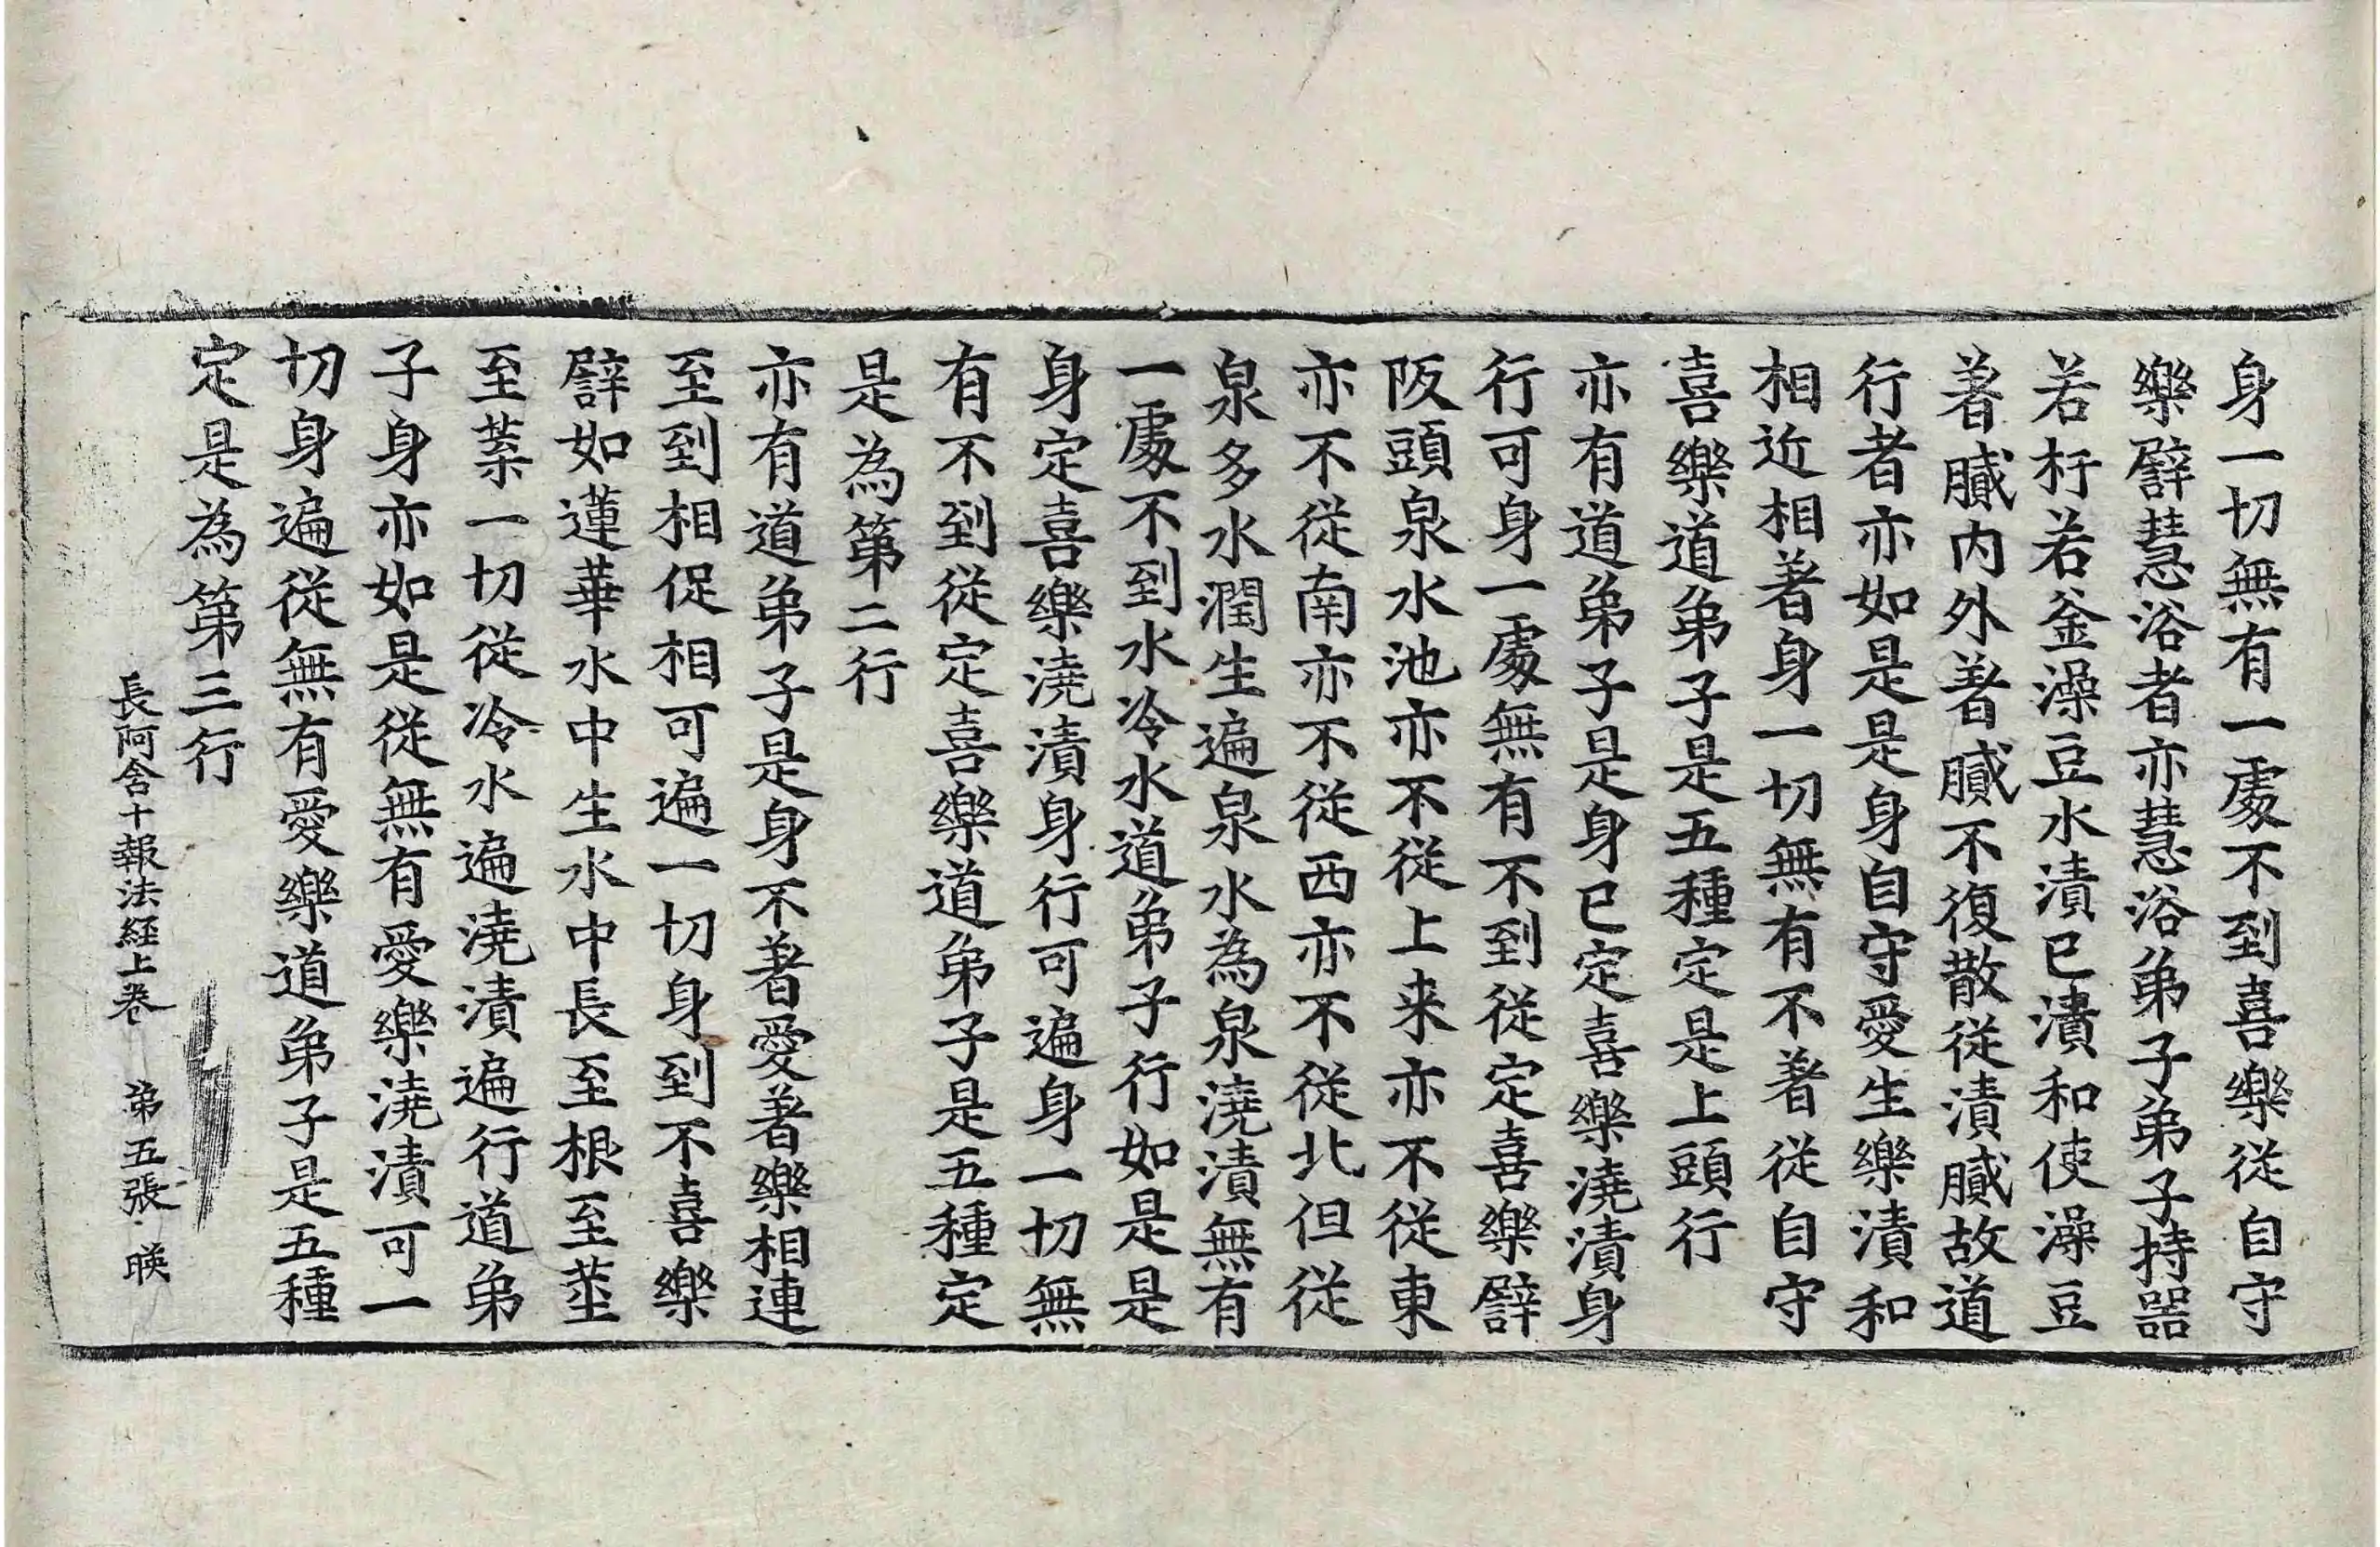 身一切無有一處不到喜樂從自守
樂譬慧浴者亦慧浴弟子弟子持器
若杅若釜澡豆水漬已漬和使澡豆
著膩内外著膩不復散從漬膩故道
行者亦如是是身自守愛生樂漬和
相近相著身一切無有不著從自守
喜樂道弟子是五種定是上頭行
亦有道弟子是身已定喜樂澆漬身
行可身一處無有不到從定喜樂譬
阪頭泉水池亦不從上来亦不從東
亦不從南亦不從西亦不從北但從
泉多水潤生遍泉水為泉澆漬無有
一處不到水冷水道弟子行如是是
身定喜樂澆漬身行可遍身一切無
有不到從定喜樂道弟子是五種定
是為第二行
亦有道弟子是身不著愛著樂相連
至到相促相可遍一切身到不喜樂
譬如蓮華水中生水中長至根至莖
至葉一切從冷水遍澆漬遍行道弟
子身亦如是從無有愛樂澆漬可一
切身遍從無有愛樂道弟子是五種
定是為第三行
長阿含十報法經上卷 第五張 暎